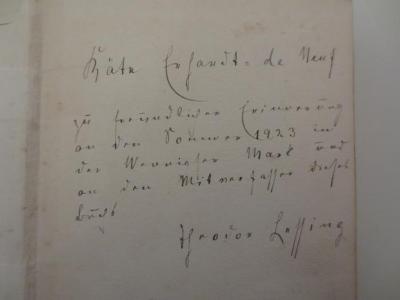 Käte Erhardt-de Neuf
zu freundlicher Erinnerung
an den Sommer 1923 in
der Wenniger Mark und
an den Mitverfasser dieses
Buchs
Theodor Lessing